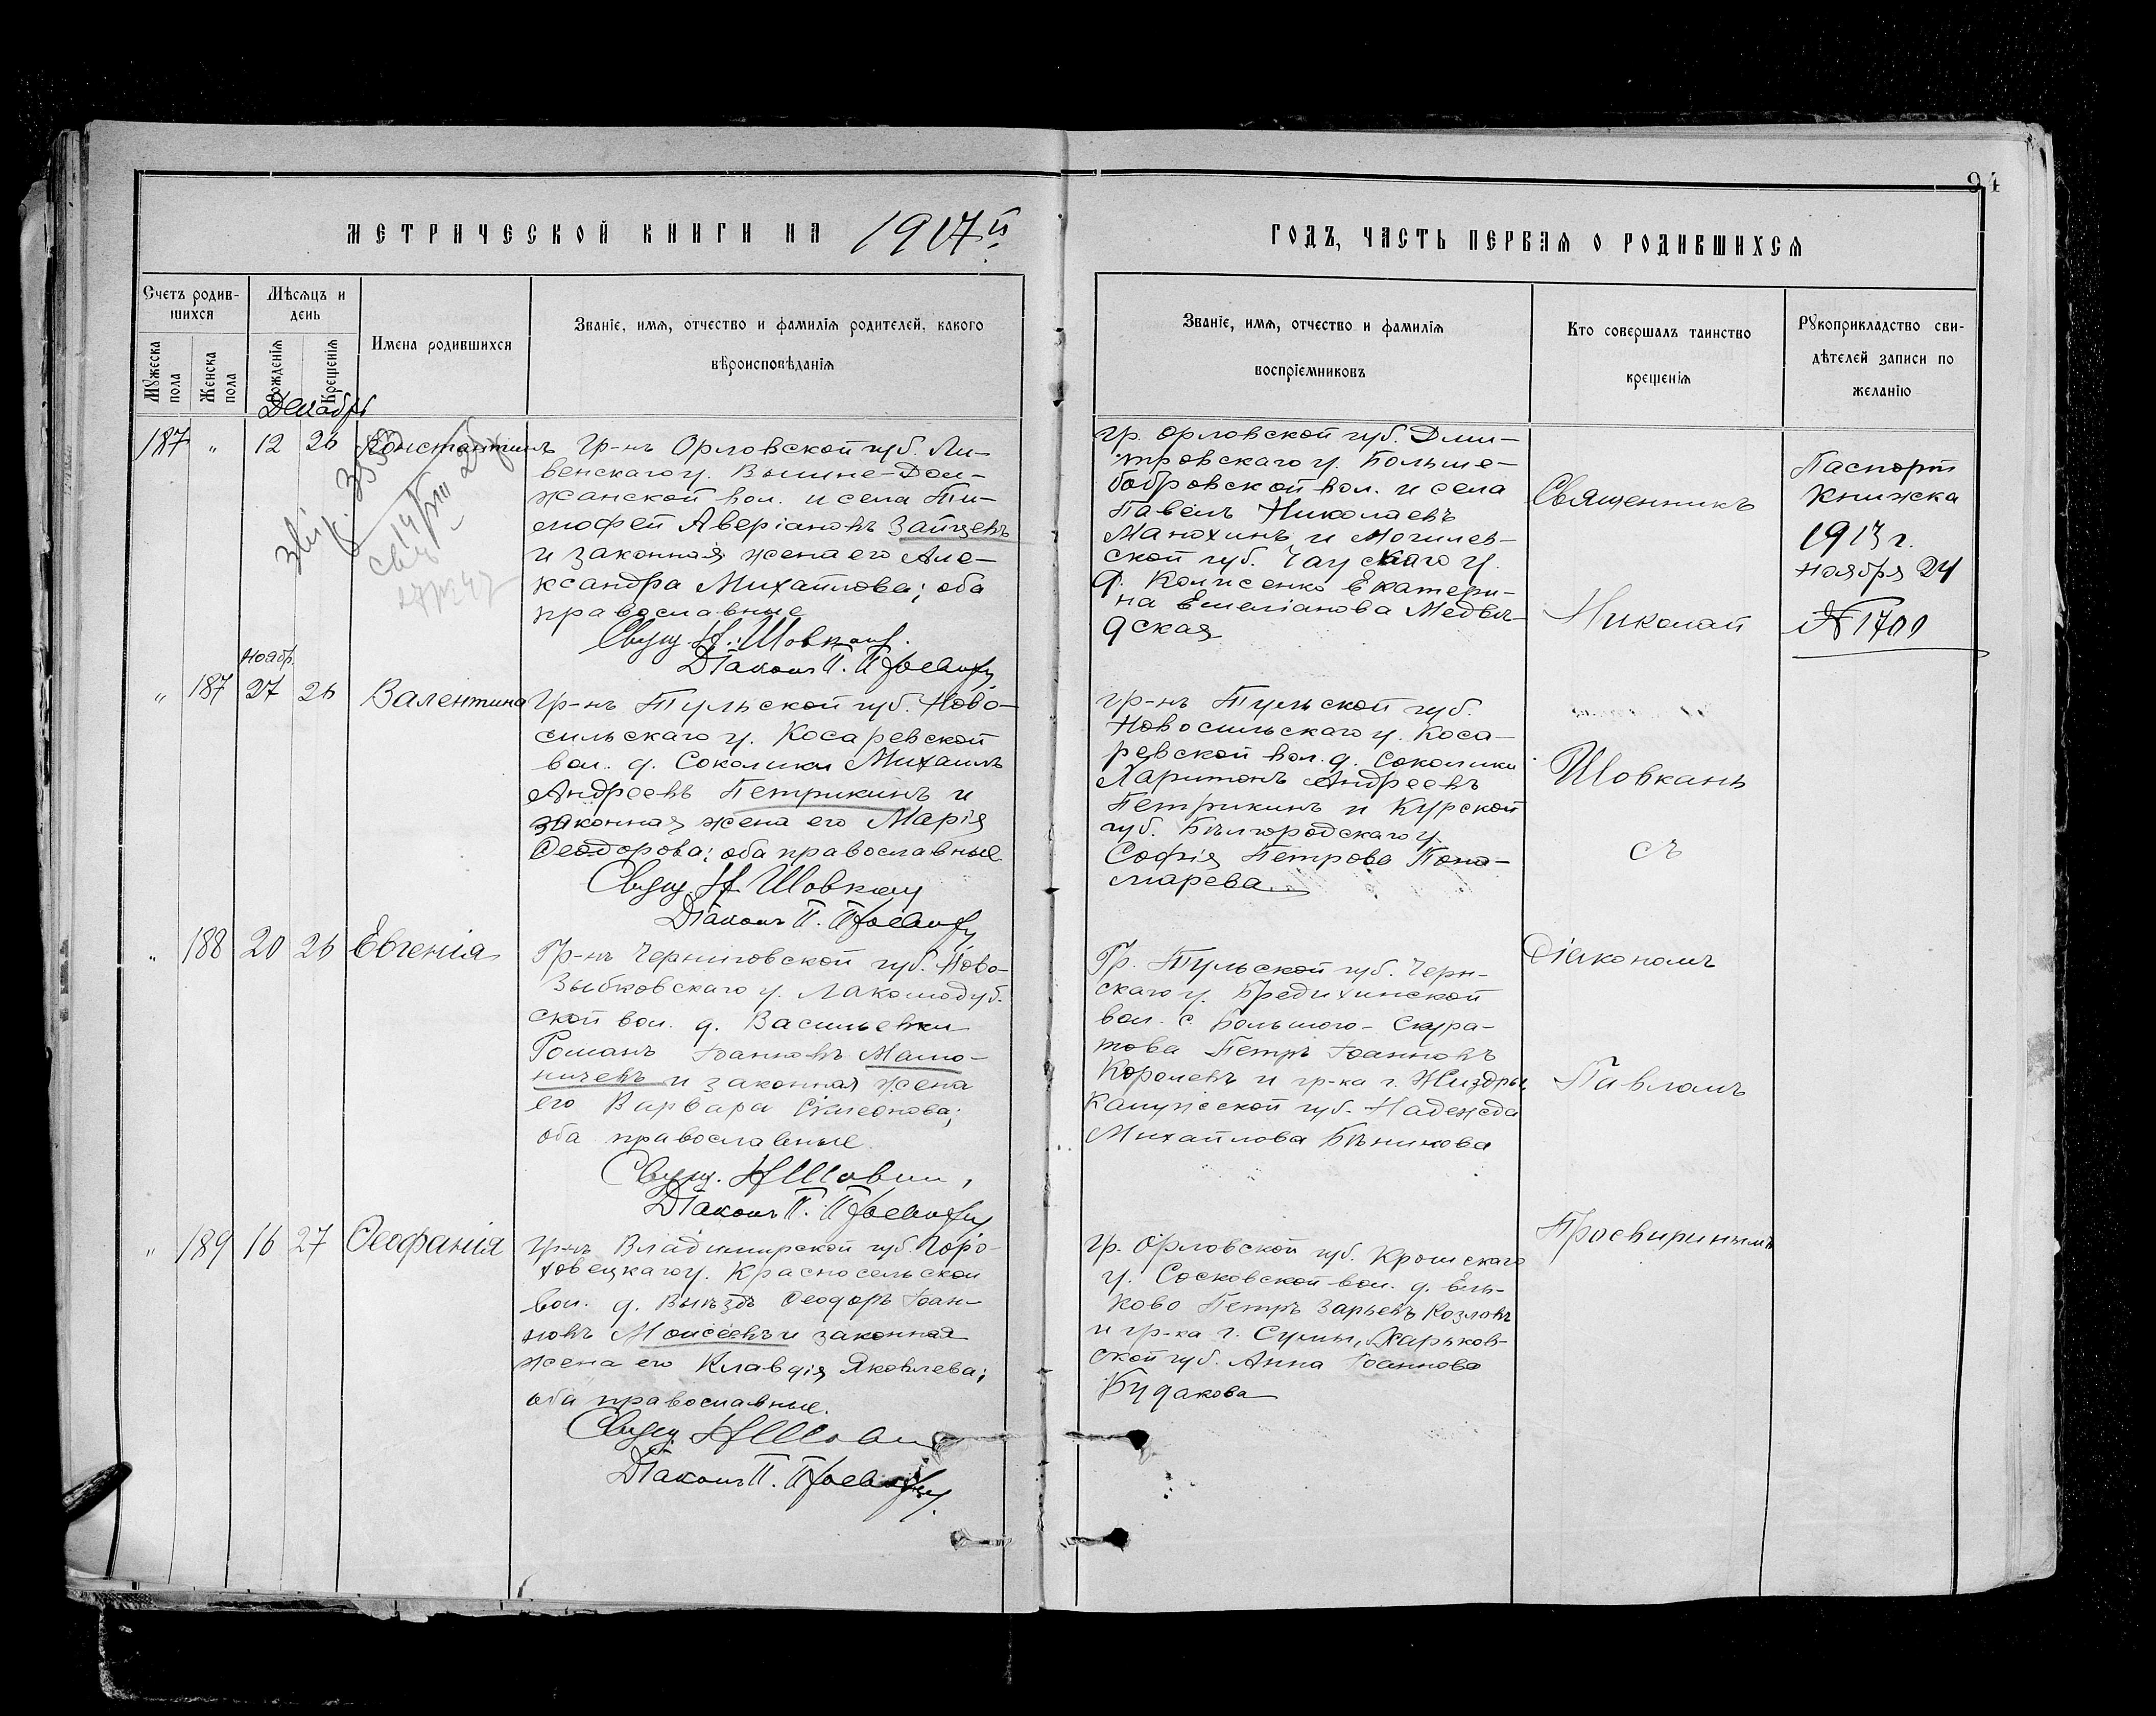 94
МЕТРИЧЕСКОЙ КНИГИ НА 1917й
ГОДЪ, ЧАСТЬ ПЕРВАЯ О РОДИВШИХСЯ
Счетъ родив-
шихся
Мужеска пола
Женска пола
Мѣсяцъ и
день
Рожденія
Крещенія
Имена родившихся
Званіе, имя, отчество и фамилія родителей, какого
вѣроисповѣданія
Званіе, имя, отчество и фамилія
воспріемниковъ
Кто совершалъ таинство
крещенія
Рукоприкладство сви-
дѣтелей записи по
желанію
Декабрь
187 " 12 26 Константинъ
Гр-нъ Орловской губ. Ли-
венскаго у. Вышне-Дол-
жанской вол. и села Ти-
мофей Аверіановъ Зайцевъ
и законная жена его Але-
ксандра Михайлова; оба
православные
Свящ. Н. Шовкан.
Діаконъ П. Просвирн
гр. Орловской губ. Дми-
тровскаго у. Больше-
бобровской вол. и села
Павелъ Николаевъ
Манохинъ и Могилев-
ской губ. Чаускаго у.
д. Колисенко Екатери-
на Емеліанова Медвѣ-
дская
Паспорт
книжка
1913 г.
ноября 24
№ 1700
Нояб.
" 187 27 26 Валентина
Гр-нъ Тульской губ. Ново-
сильскаго у. Косаревской
вол. д. Соколики Михаилъ
Андреевъ Петрикинъ и
законная жена его Марія
Ѳеодорова; оба православные
Свящ. Н. Шовкан
Діаконъ П. Просвирн
гр-нъ Тульской губ.
Новосильскаго у. Коса-
ревской вол. д. Соколики
Харитонъ Андреевъ
Петрикинъ и Курской
губ. Бѣлгородскаго у.
Софія Петрова Поно-
марева.
" 188 20 26 Евгенія
Гр-нъ Черниговской губ. Ново-
Зыбковскаго у. Лакомодуб-
ской вол. д. Васильевки
Романъ Іоанновъ Мамо-
ничевъ и законная жена
его Варвара Симеонова;
оба православные.
Свящ. Н Шовкан
Діаконъ П. Просвирн
Гр. Тульской губ. Черн-
скаго у. Бредихинской
вол. с. Большого-Скура-
това Петръ Іоанновъ
Королевъ и гр-ка г. Жиздры
Калужской губ. Надежда
Михайлова Бѣникова
" 189 16 27 Ѳеофанія
Гр-нъ Владимирской губ. Горо-
ховецкаго у. Красносельской
вол. д. Выѣздъ Ѳеодоръ Іоан-
новъ Моисеевъ и законная
жена его Клавдія Яковлева;
оба православные.
Свящ Н Шовкан
Діаконъ П. Просвирн.
гр. Орловской губ. Кромскаго
у. Сосковской вол. д. Ель-
ково Петръ Зарьевъ Козловъ
и гр-ка г. Сумы, Харьков-
ской губ. Анна Іоаннова
Будакова
Священникъ
Николай
Шовканъ
съ
Діакономъ
Павломъ
Просвиринымъ